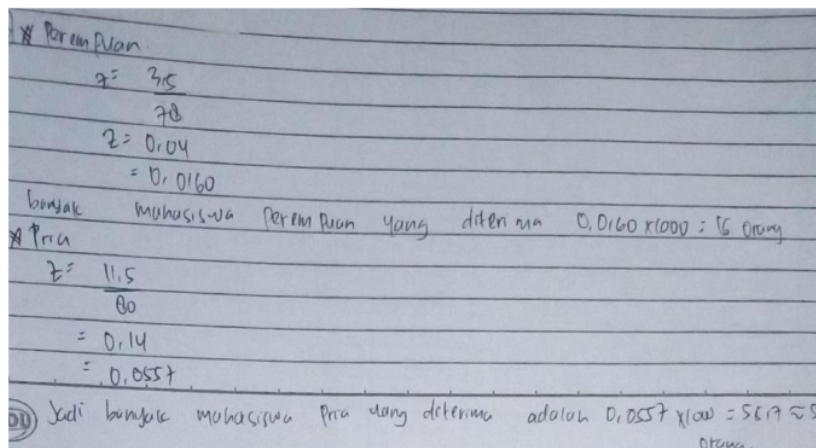 * Perempuan.
z = 3,5
78
z = 0,04
= 0,0160
banyak mahasiswa perempuan yang diterima 0,0160 x 1000 = 16 orang
* Pria
z = 11,5
80
= 0,14
= 0,0557
Jadi banyak mahasiswa pria yang diterima adalah 0,0557 x 1000 = ≈ 5
orang.